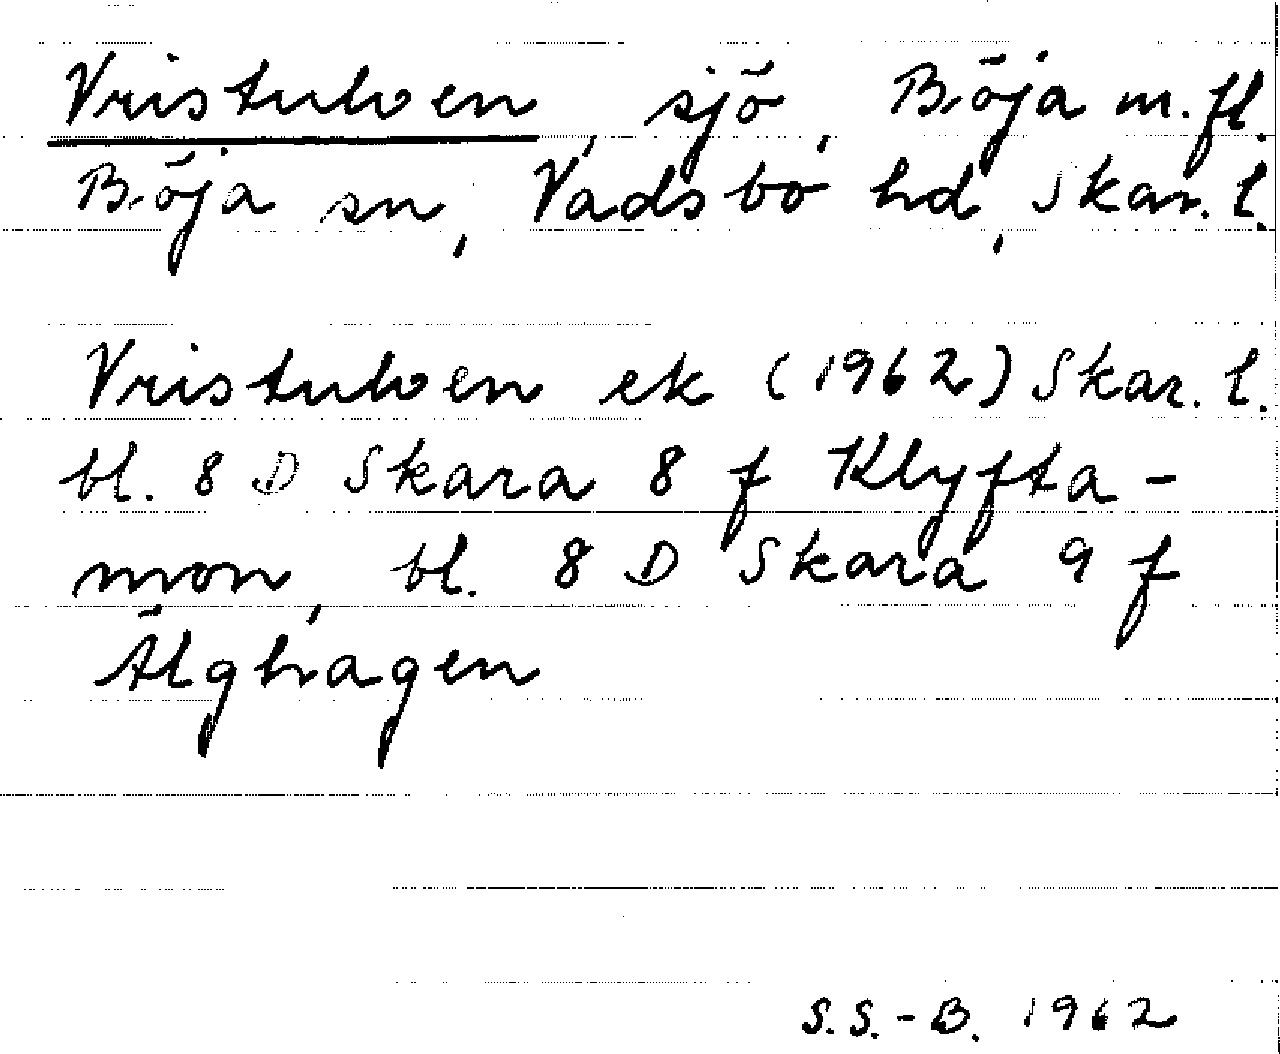 Vristulven, sjö, Böja m.fl.
Böja sn, Vadsbo hd, Skar. l.
Vristulven ek (1962) Skar. l.
bl. 8 D Skara 8 f Klyfta-
mon, bl. 8 D Skara 9 f
Älghagen
S.S.-B. 1962